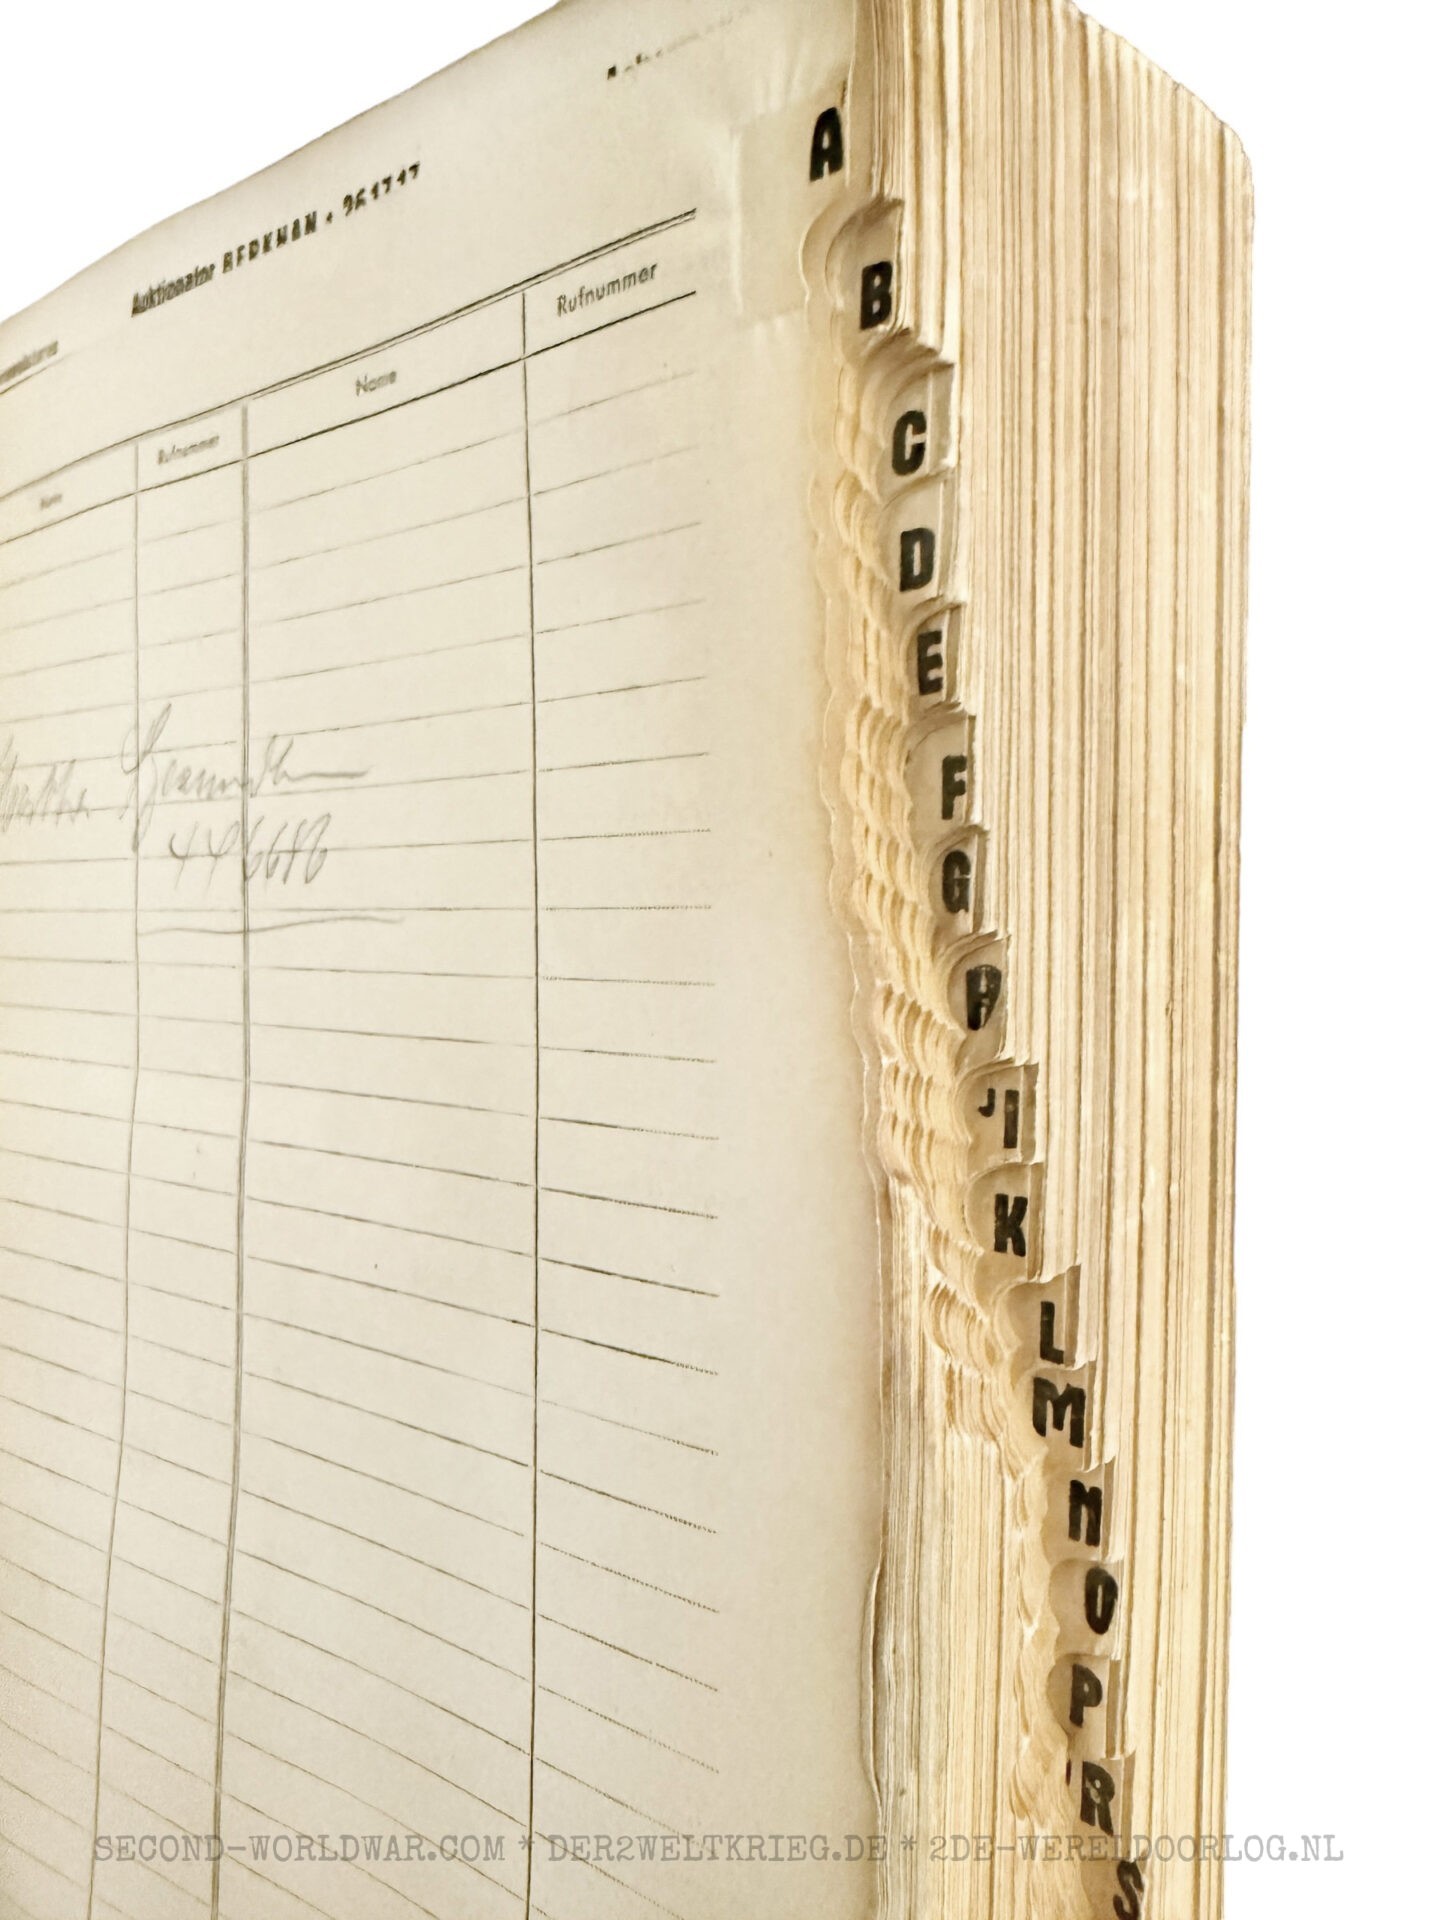 Auktionator BERKHAN • 961717
Name
Rufnummer
Name
Rufnummer
446686
A
B
C
D
E
F
G
H
JI
K
L
M
N
O
P
R
S
SECOND-WORLDWAR.COM * DER2WELTKRIEG.DE * 2DE-WERELDOORLOG.NL